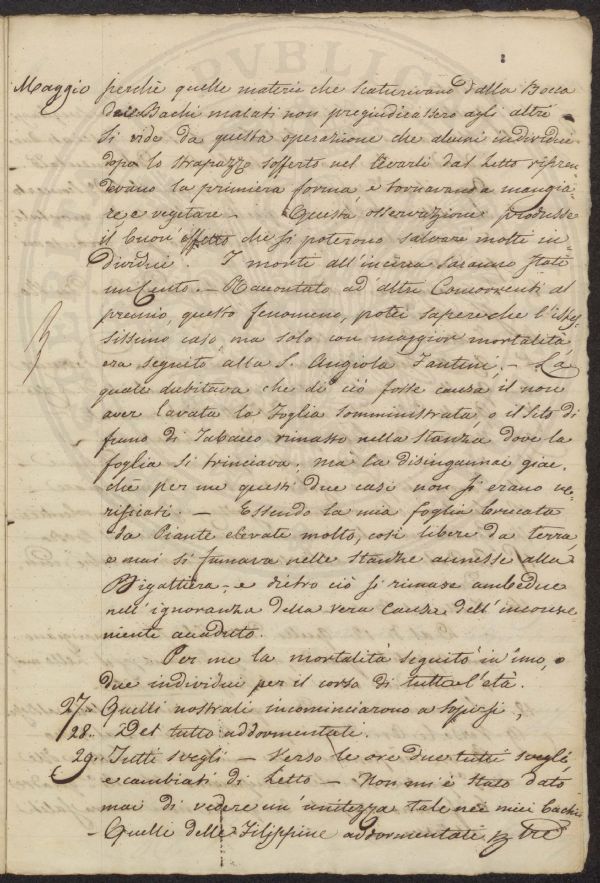 PVBLIC
Maggio perchè quelle materie che scaturivano dalla Bocca
dei Bachi malati non pregiudicassero agli altri
Si vide da questa operazione che alcuni individui
dopo lo strapazzo sofferto nel levarli dal Letto ripren=
devano la primiera forma, e tornavano a mangia=
re, e vegetare – Questa osservazione produsse
il buon' effetto che si poterono salvare molti in=
dividui. I morti all'incirca saranno stati
un Cento. – Raccontato ad altri Concorrenti al
premio, questo fenomeno, potei sapere che l'istes=
sissimo caso ma solo con maggior mortalità
era seguito alla S. Angiola Fantini. – La
quale dubitava che di ciò fosse causa il non
aver lavata la Foglia somministrata, o il feto di
fumo di Tabacco rimasto nella stanza dove la
foglia si trinciava; ma la disingannai giac=
chè per me questi due casi non si erano ve=
rificati. – Essendo la mia foglia brucata
da Piante elevate molto, così libere da terra,
e mai si fumava nelle stanze annesse alla
Bigattiera; e dietro ciò si rimase ambedue
nell'ignoranza della vera causa dell'inconve=
niente accaduto.
Per me la mortalità seguitò in uno, o
due individui per il corso di tutta l'età.
27. Quelli nostrali incominciarono a sopirsi,
28. Del tutto addormentati.
29. Tutti svegli – Verso le ore due tutti svegli,
e cambiati di Letto – Non mi è stato dato
mai di vedere un'unitezza tale nei miei bachi
– Quelli delle Filippine addormentati p tre